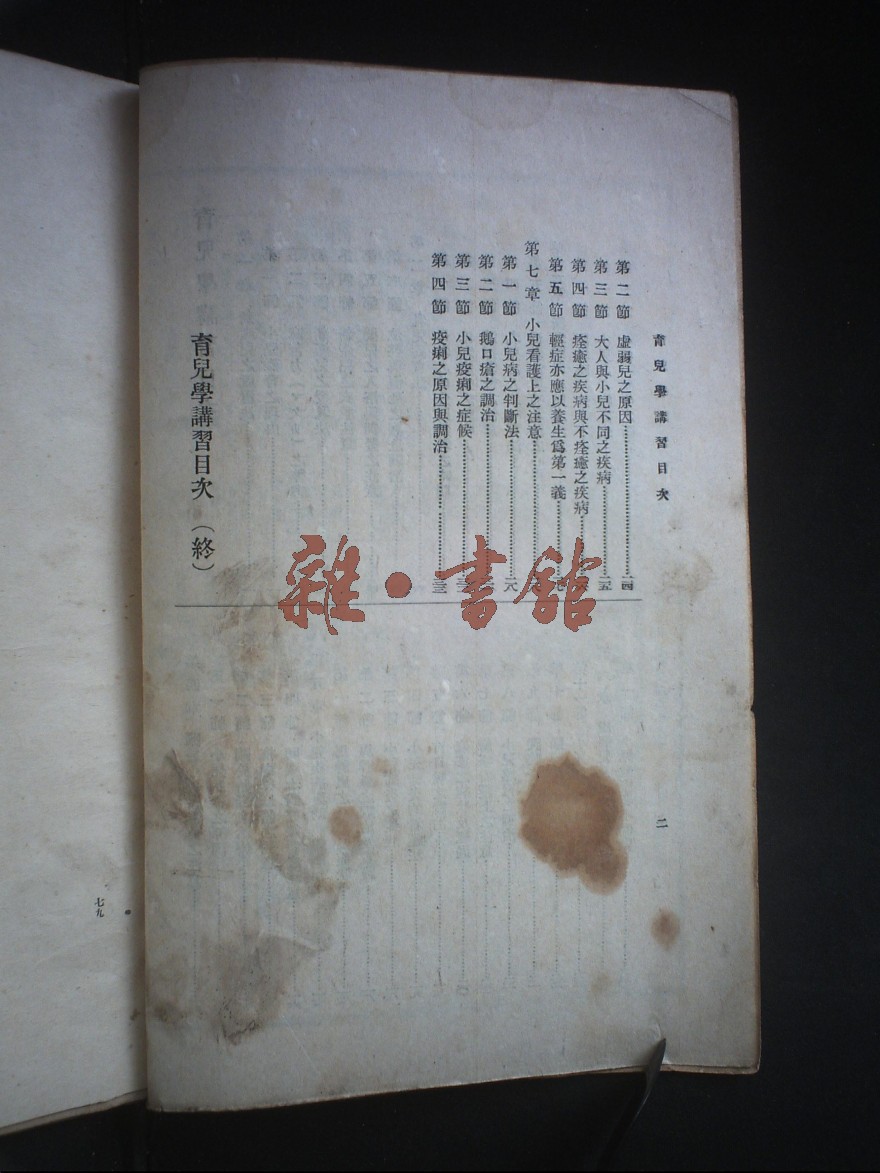 育兒學講習目次
第二節 虛弱兒之原因………二四
第三節 大人與小兒不同之疾病………二五
第四節 痊癒之疾病與不痊癒之疾病………
第五節 輕症亦應以養生爲第一義………
第七章 小兒看護上之注意………
第一節 小兒病之判斷法………二八
第二節 鵝口瘡之調治………
第三節 小兒疫痢之症候………
第四節 疫痢之原因與調治………三三
育兒學講習目次（終）
二
七九
雜·書館